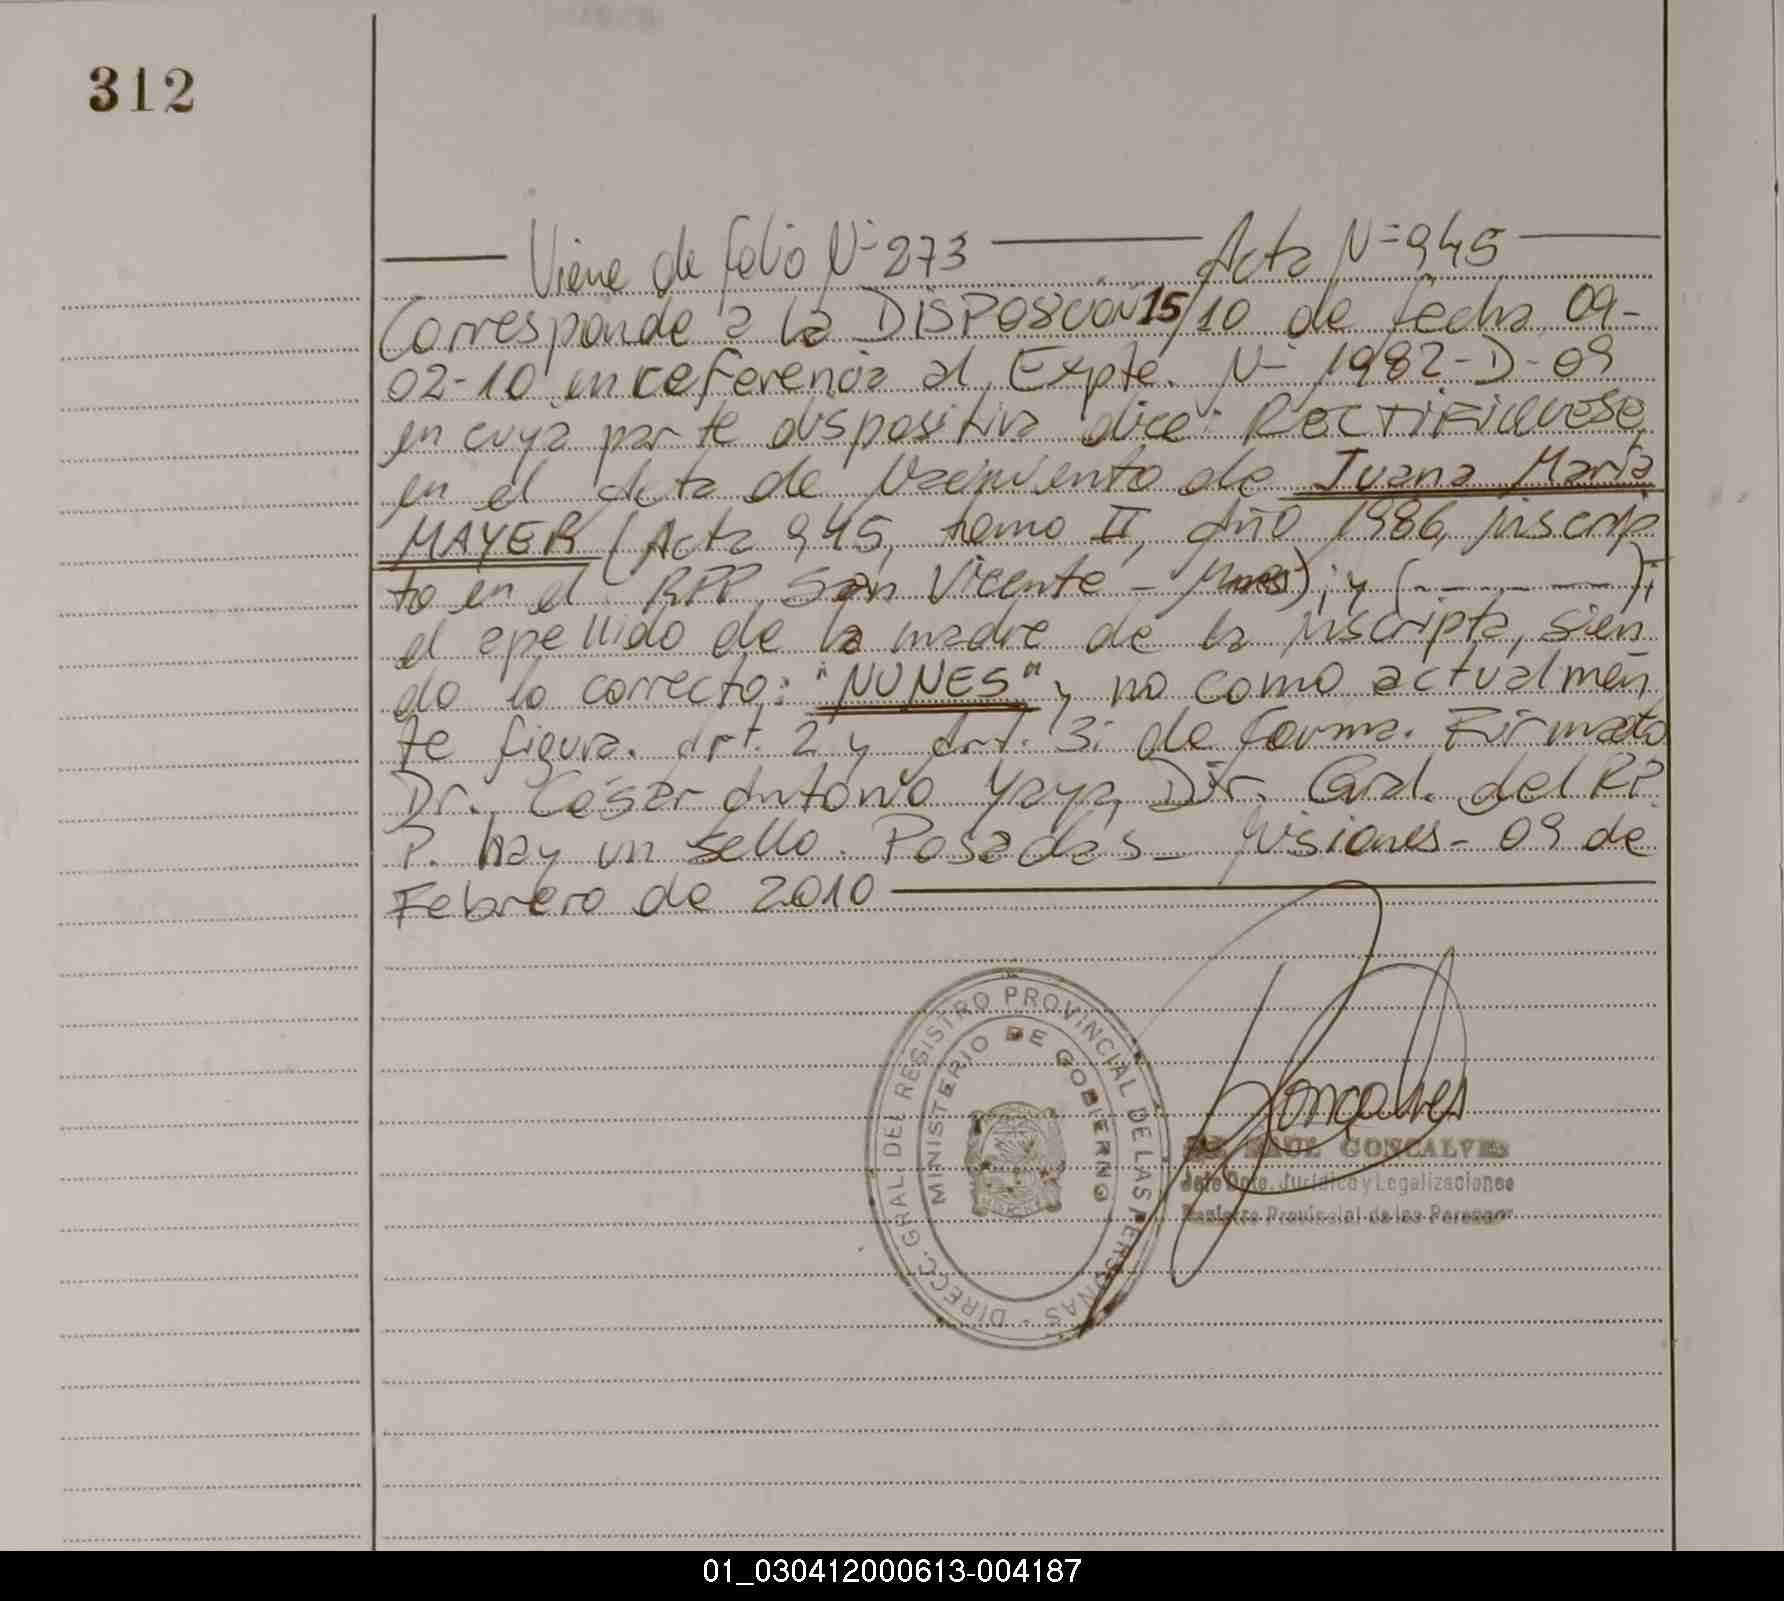 312
Viene de folio N= 273 Acta N= 945
Corresponde a la DISPOSICION 15/10 de fecha 09-
02-10 en referencia al Expte. N- 1982-D-09
en cuya parte dispositiva dice: RECTIFIQUESE,
en el Acta de Nacimiento de Juana María
MAYER (Acta 945, tomo II, Año 1986, inscrip
to en el RPP San Vicente - Mnes); y (- - - - -);
el apellido de la madre de la inscripta, sien
do lo correcto: "NUNES" y no como actualmen
te figura. Art. 2 y Art. 3: de forma. Firmado
Dr. César Antonio Yaya, Dir. Gral. del RP.
P. hay un sello. Posadas - Misiones - 09 de
Febrero de 2010
DIRECC. GRAL. DEL REGISTRO PROVINCIAL DE LAS PERSONAS -
MINISTERIO DE GOBIERNO
Goncalves
RAUL GONCALVES
Jefe Dpto. Jurídico y Legalizaciones
Registro Provincial de las Personas
01_030412000613-004187